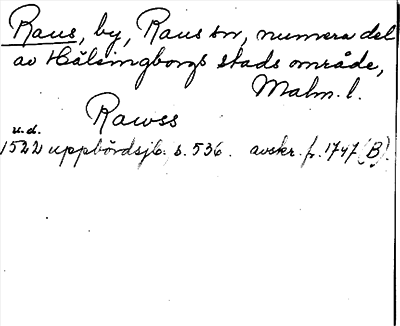 Raus, by, Raus sn, numera del
av Hälsingborgs stads område,
Malm. l.
Rawss
u.d.
1522 uppbördsjb. s. 536. avskr. fr. 1747 (B).